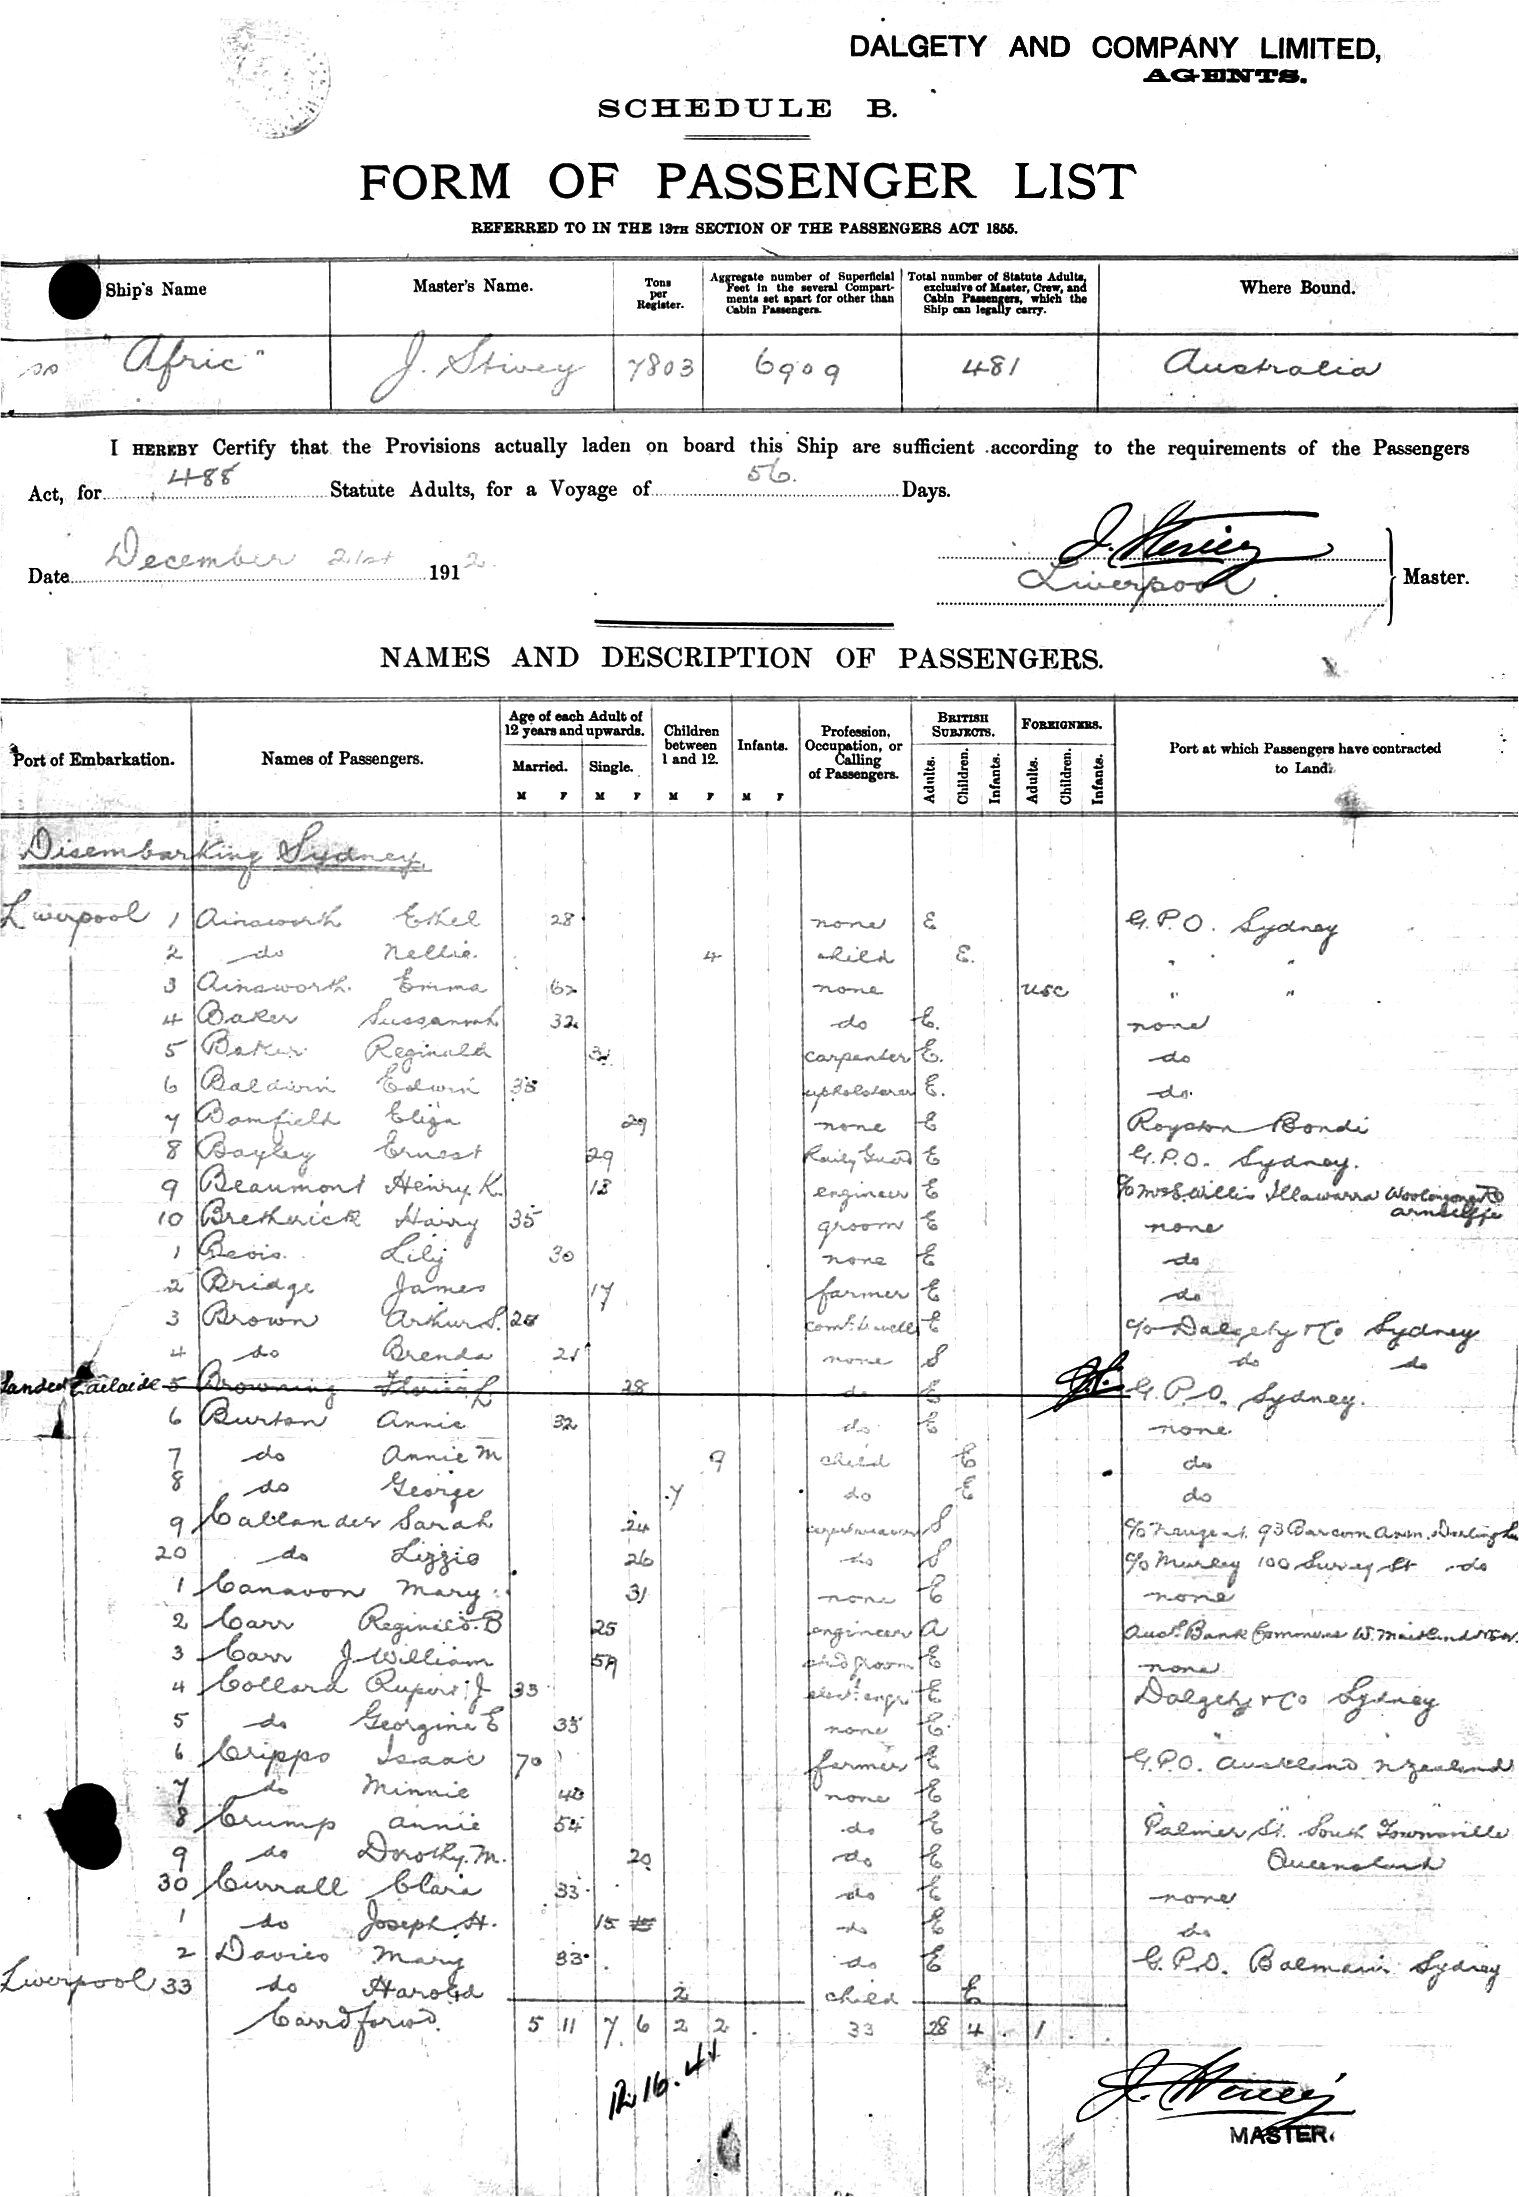 DALGETY AND COMPANY LIMITED,
AGENTS.
SCHEDULE B.
FORM OF PASSENGER LIST
REFERRED TO IN THE 13TH SECTION OF THE PASSENGERS ACT 1855.
Ship's Name Master's Name. Tons per Register. Aggregate number of Superficial Feet in the several Compartments set apart for other than Cabin Passengers. Total number of Statute Adults, exclusive of Master, Crew, and Cabin Passengers, which the Ship can legally carry. Where Bound.
SS "Afric" J. Stivey 7803 6909 481 Australia
I HEREBY Certify that the Provisions actually laden on board this Ship are sufficient according to the requirements of the Passengers
Act, for 488 Statute Adults, for a Voyage of 56. Days.
J. Stivey
Date December 21st 1912. Liverpool. Master.
NAMES AND DESCRIPTION OF PASSENGERS.
Port of Embarkation. Names of Passengers. Age of each Adult of 12 years and upwards. Married. M F Single. M F Children between 1 and 12. M F Infants. M F Profession, Occupation, or Calling of Passengers. BRITISH SUBJECTS. Adults. Children. Infants. FOREIGNERS. Adults. Children. Infants. Port at which Passengers have contracted to Land.
Disembarking Sydney.
Liverpool 1 Ainsworth Ethel 28 none E G.P.O. Sydney
2 do Nellie. 4 child E. " "
3 Ainsworth. Emma 62 none USC " "
4 Baker Sussannah 32 do E. none
5 Baker Reginald carpenter E. do
6 Baldwin Edwin 35 upholsterer E. do.
7 Bamfield Eliza 29 none E Royston Bondi
8 Bayley Ernest 29 Raily Guard E G.P.O. Sydney.
9 Beaumont Henry K. 18 engineer E c/o Mrs S. Willis Illawarra Woolongong Rd
Arncliffe
10 Bretherick Harry 35 groom E none
1 Bevis. Lily 30 none E do
2 Bridge James 17 farmer E do
3 Brown Arthur S. E c/o Dalgety & Co Sydney
4 do Brenda 21 none S do do
Landed Adelaide 5 Browning L 28 do E J.S. G.P.O. Sydney.
6 Burton Annie 32 do E none
7 do Annie M 9 child E do
8 do George 7 do E do
9 Callander Sarah 24 S c/o Neugent. 93 Barcom Avn.
20 do Lizzie 26 do S c/o Murley 100 Surrey St do
1 Canavon Mary 31 none E none
2 Carr Reginald. B 25 engineer A Aust. Bank Commerce W. Maitland NSW.
3 Carr J. William 59 groom E none
4 Collard Rupert J 33 elect. engr E Dalgety & Co Sydney
5 do Georgina E 35 none E "
6 Cripps Isaac 70 farmer E G.P.O. Auckland N Zealand
7 do Minnie 40 none E
8 Crump Annie 54 do E Palmer St. South Townsville
9 do Dorothy. M. 20 do E Queensland
30 Currall Clara 33 do E none
1 do Joseph. H. 15 15 do E do
2 Davies Mary 33 do E G.P.O. Balmain Sydney
Liverpool 33 do Harold 2 child E
Carrd forwd. 5 11 7 6 2 2 . . 33 28 4 . 1 . .
J. Stivey
MASTER.